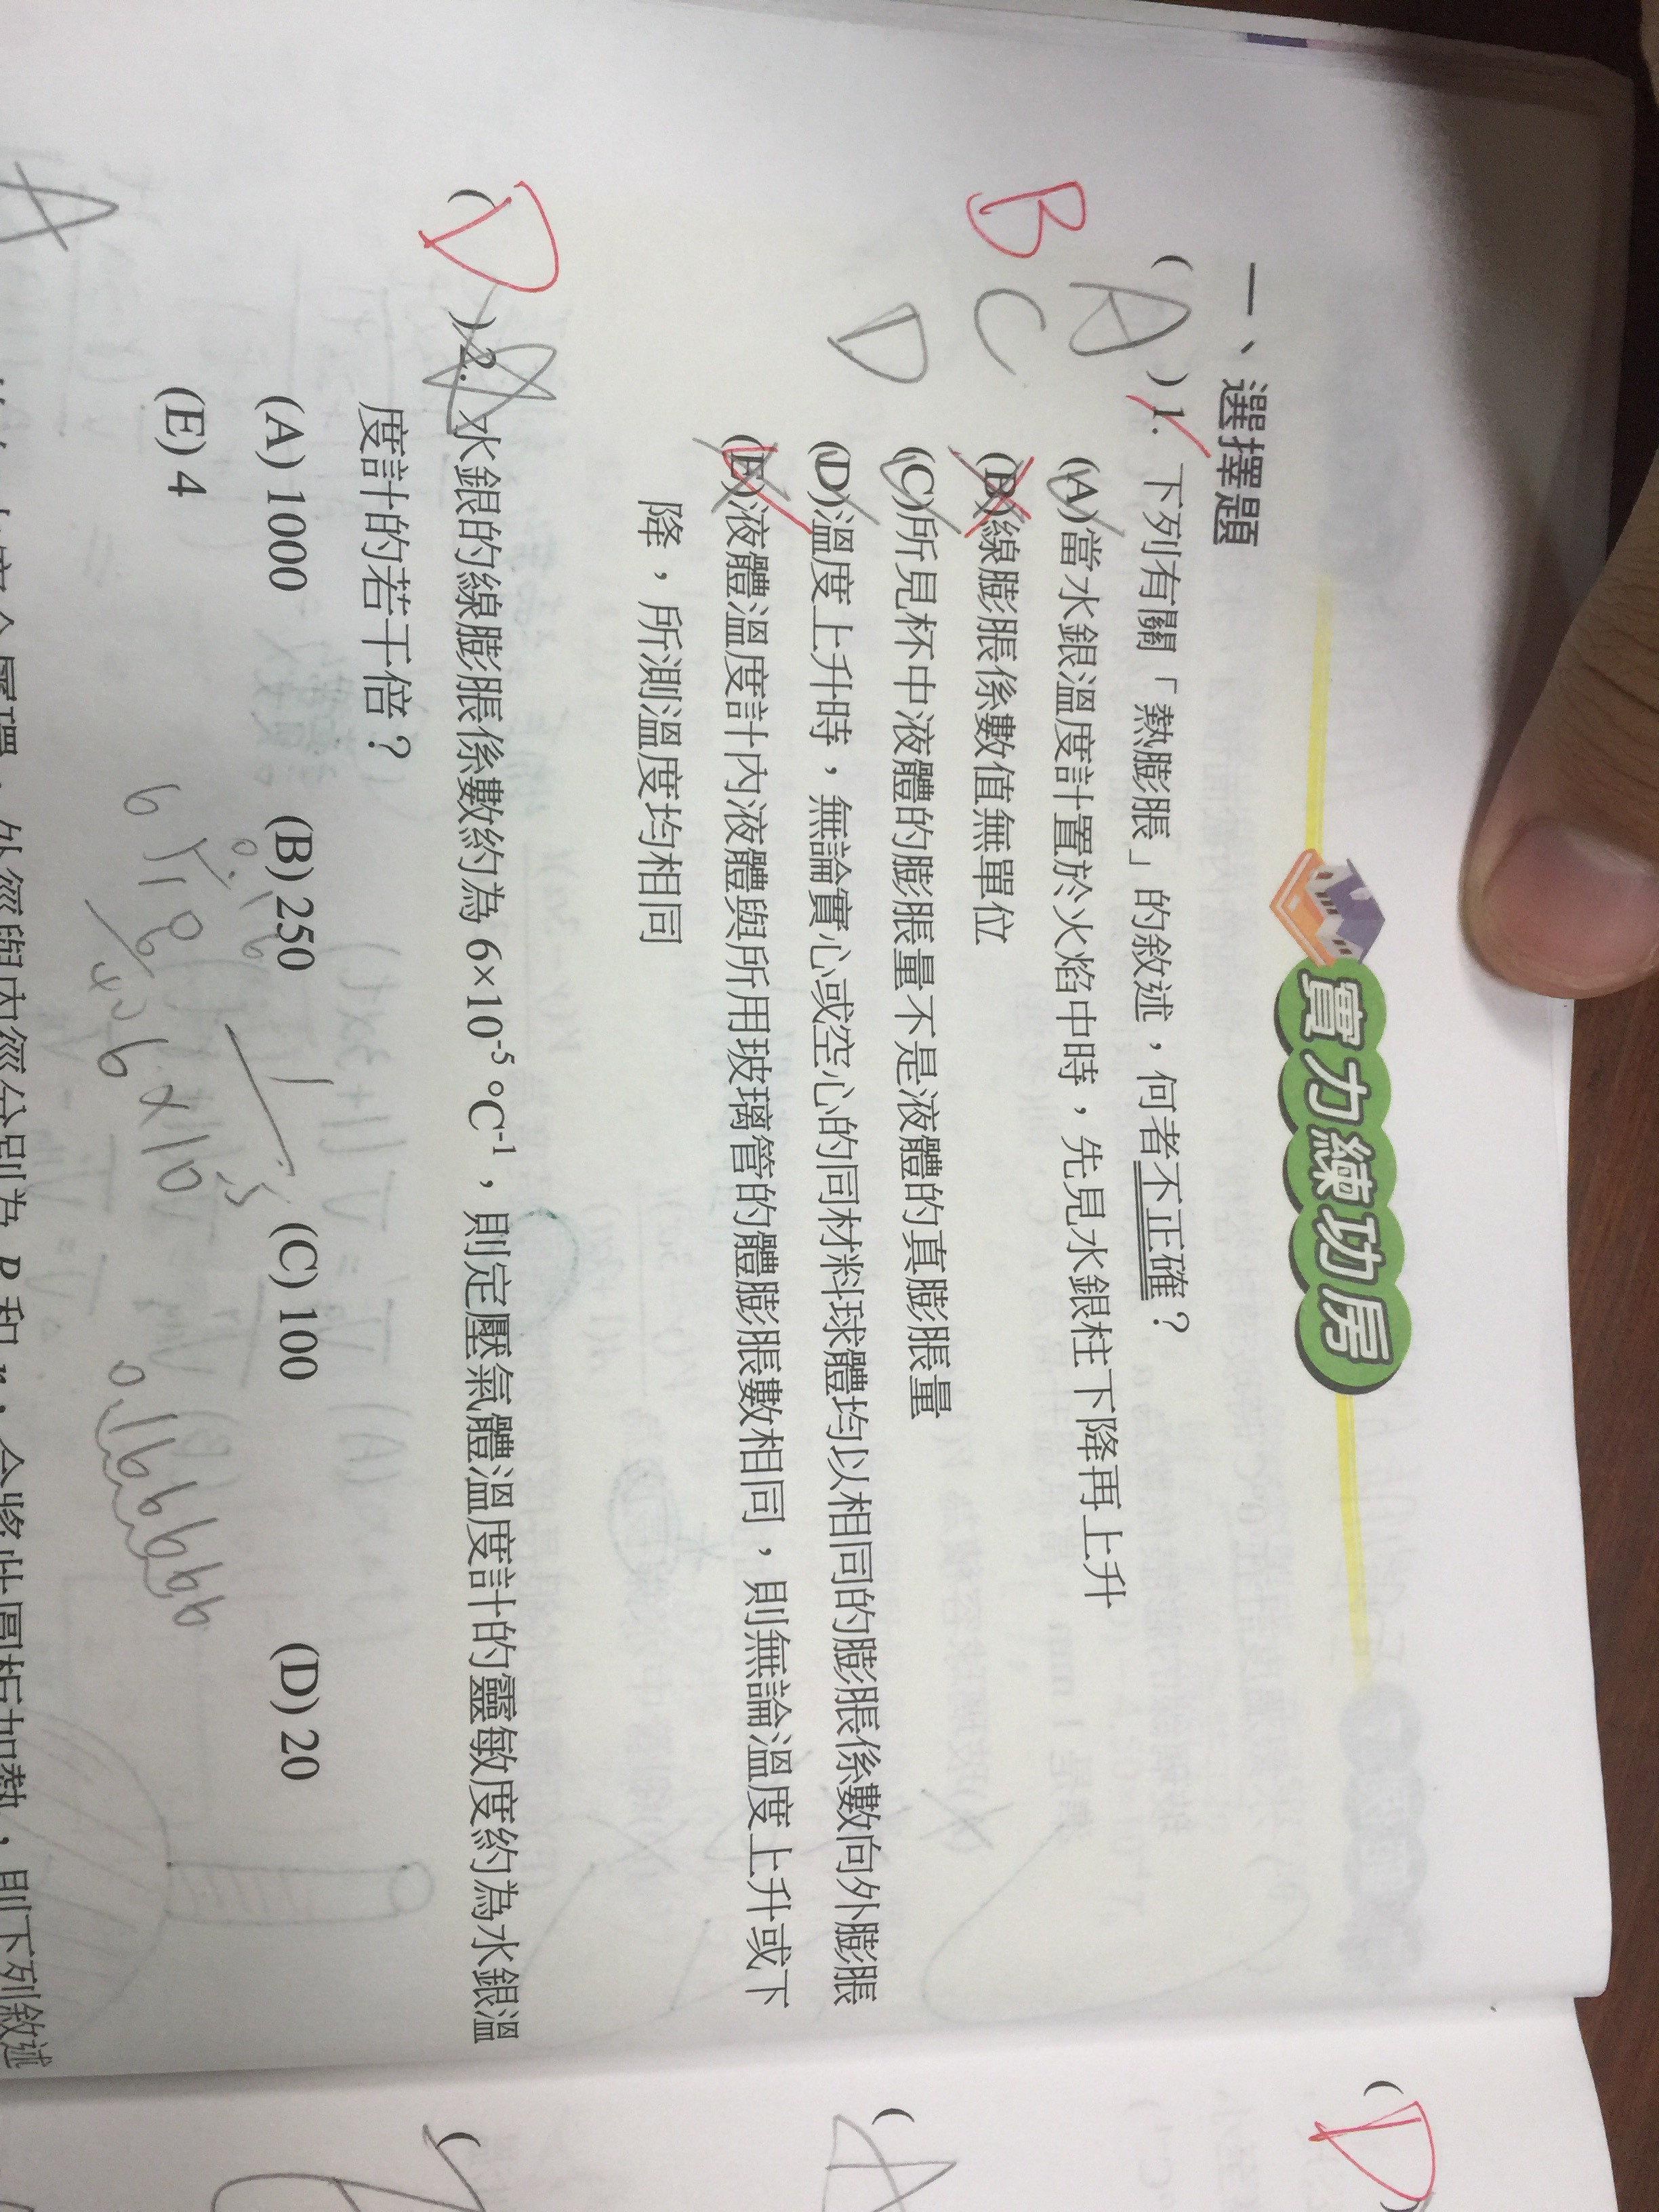 實力練功房
一、選擇題
( A ) 1. 下列有關「熱膨脹」的敘述，何者不正確？
B C D
(A)當水銀溫度計置於火焰中時，先見水銀柱下降再上升
(B)線膨脹係數值無單位
(C)所見杯中液體的膨脹量不是液體的真膨脹量
(D)溫度上升時，無論實心或空心的同材料球體均以相同的膨脹係數向外膨脹
(E)液體溫度計內液體與所用玻璃管的體膨脹數相同，則無論溫度上升或下
降，所測溫度均相同
( D ) 2. 水銀的線膨脹係數約為 6×10⁻⁵ °C⁻¹，則定壓氣體溫度計的靈敏度約為水銀溫
度計的若干倍？
(A) 1000 (B) 250 (C) 100 (D) 20
(E) 4
0.1666666
A
外徑與內徑分別為 R 和 r，今將此圓柱加熱，則下列敘述
( D )
( A
(